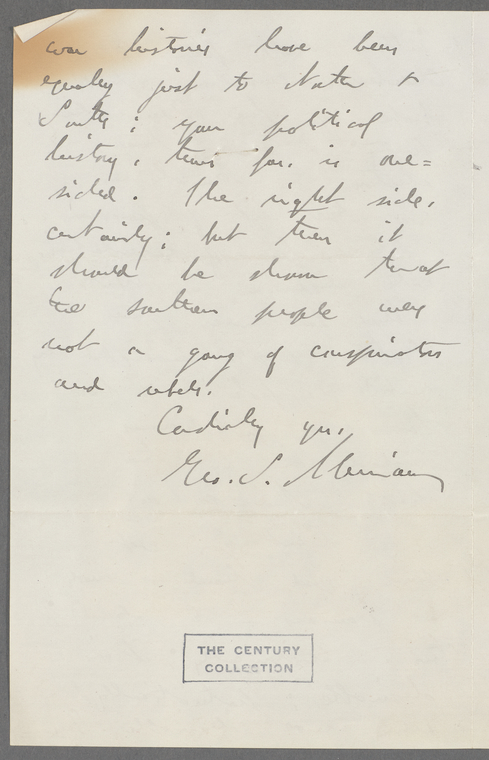 war histories have been
equally just to North &
South; your political
history, thus far, is one=
sided. The right side,
certainly; but then it
should be shown that
the southern people were
not a gang of conspirators
and rebels.
Cordially yrs,
Geo. S. Merriam
THE CENTURY
COLLECTION